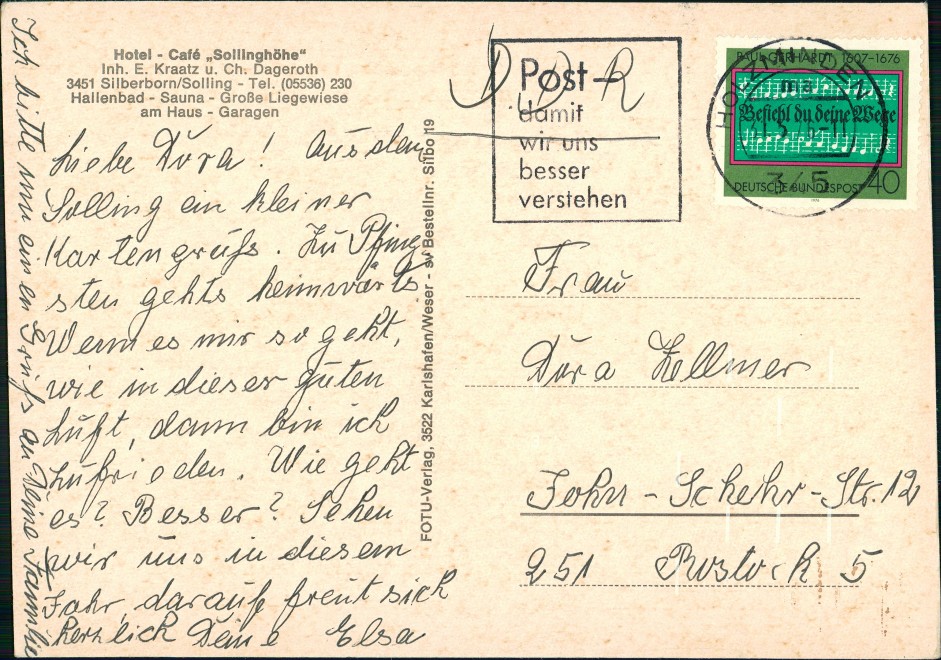 Hotel - Café „Sollinghöhe"
Inh. E. Kraatz u. Ch. Dageroth
3451 Silberborn/Solling - Tel. (05536) 230
Hallenbad - Sauna - Große Liegewiese
am Haus - Garagen
Liebe Dora! Aus dem
Solling ein kleiner
Kartengruß. Zu Pfing
sten gehts heimwärts
Wenn es mir so geht,
wie in dieser guten
Luft, dann bin ich
zufrieden. Wie geht
es? Besser? Sehen
wir uns in diesem
Jahr, darauf freut sich
herzlich Deine Elsa
Ich bitte um einen Gruß an Deine Familie
FOTU-Verlag, 3522 Karlshafen/Weser - sv Bestellnr. Silbo 19
DDR
Post -
damit
wir uns
besser
verstehen
PAUL GERHARDT 1607-1676
Befiehl du deine Wege
DEUTSCHE BUNDESPOST 40
HOLZMINDEN
Frau
Dora Zellmer
John - Schehr - Str. 12
251 Rostock 5